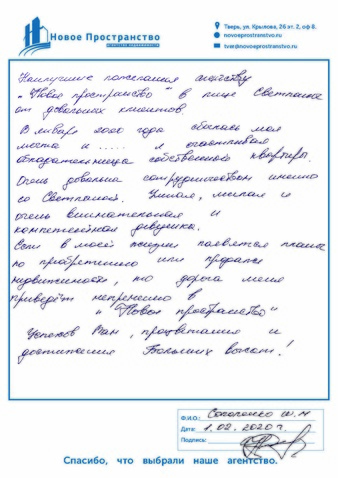 Новое Пространство
АГЕНТСТВО НЕДВИЖИМОСТИ
Тверь, ул. Крылова, 26 эт. 2, оф 8.
novoeprostranstvo
tver@novoeprostranstvo.ru
Наилучшие пожелания агентству
"Новое пространство" в лице Светланы
от довольных клиентов.
В январе 2020 года сбылась моя
мечта и ..... я счастливая
обладательница собственной квартиры.
Очень довольна сотрудничеством именно
со Светланой. Умная, милая и
очень внимательная и
компетентная девушка.
Если в моей жизни появятся планы
по приобретению или продаже
недвижимости, то дорога меня
приведёт непременно в
"Новое пространство"
Успехов Вам, процветания и
достижения Больших высот!
Ф.И.О.: Соколенко
Дата: 1.02.2020 г.
Подпись:
Спасибо, что выбрали наше агентство.